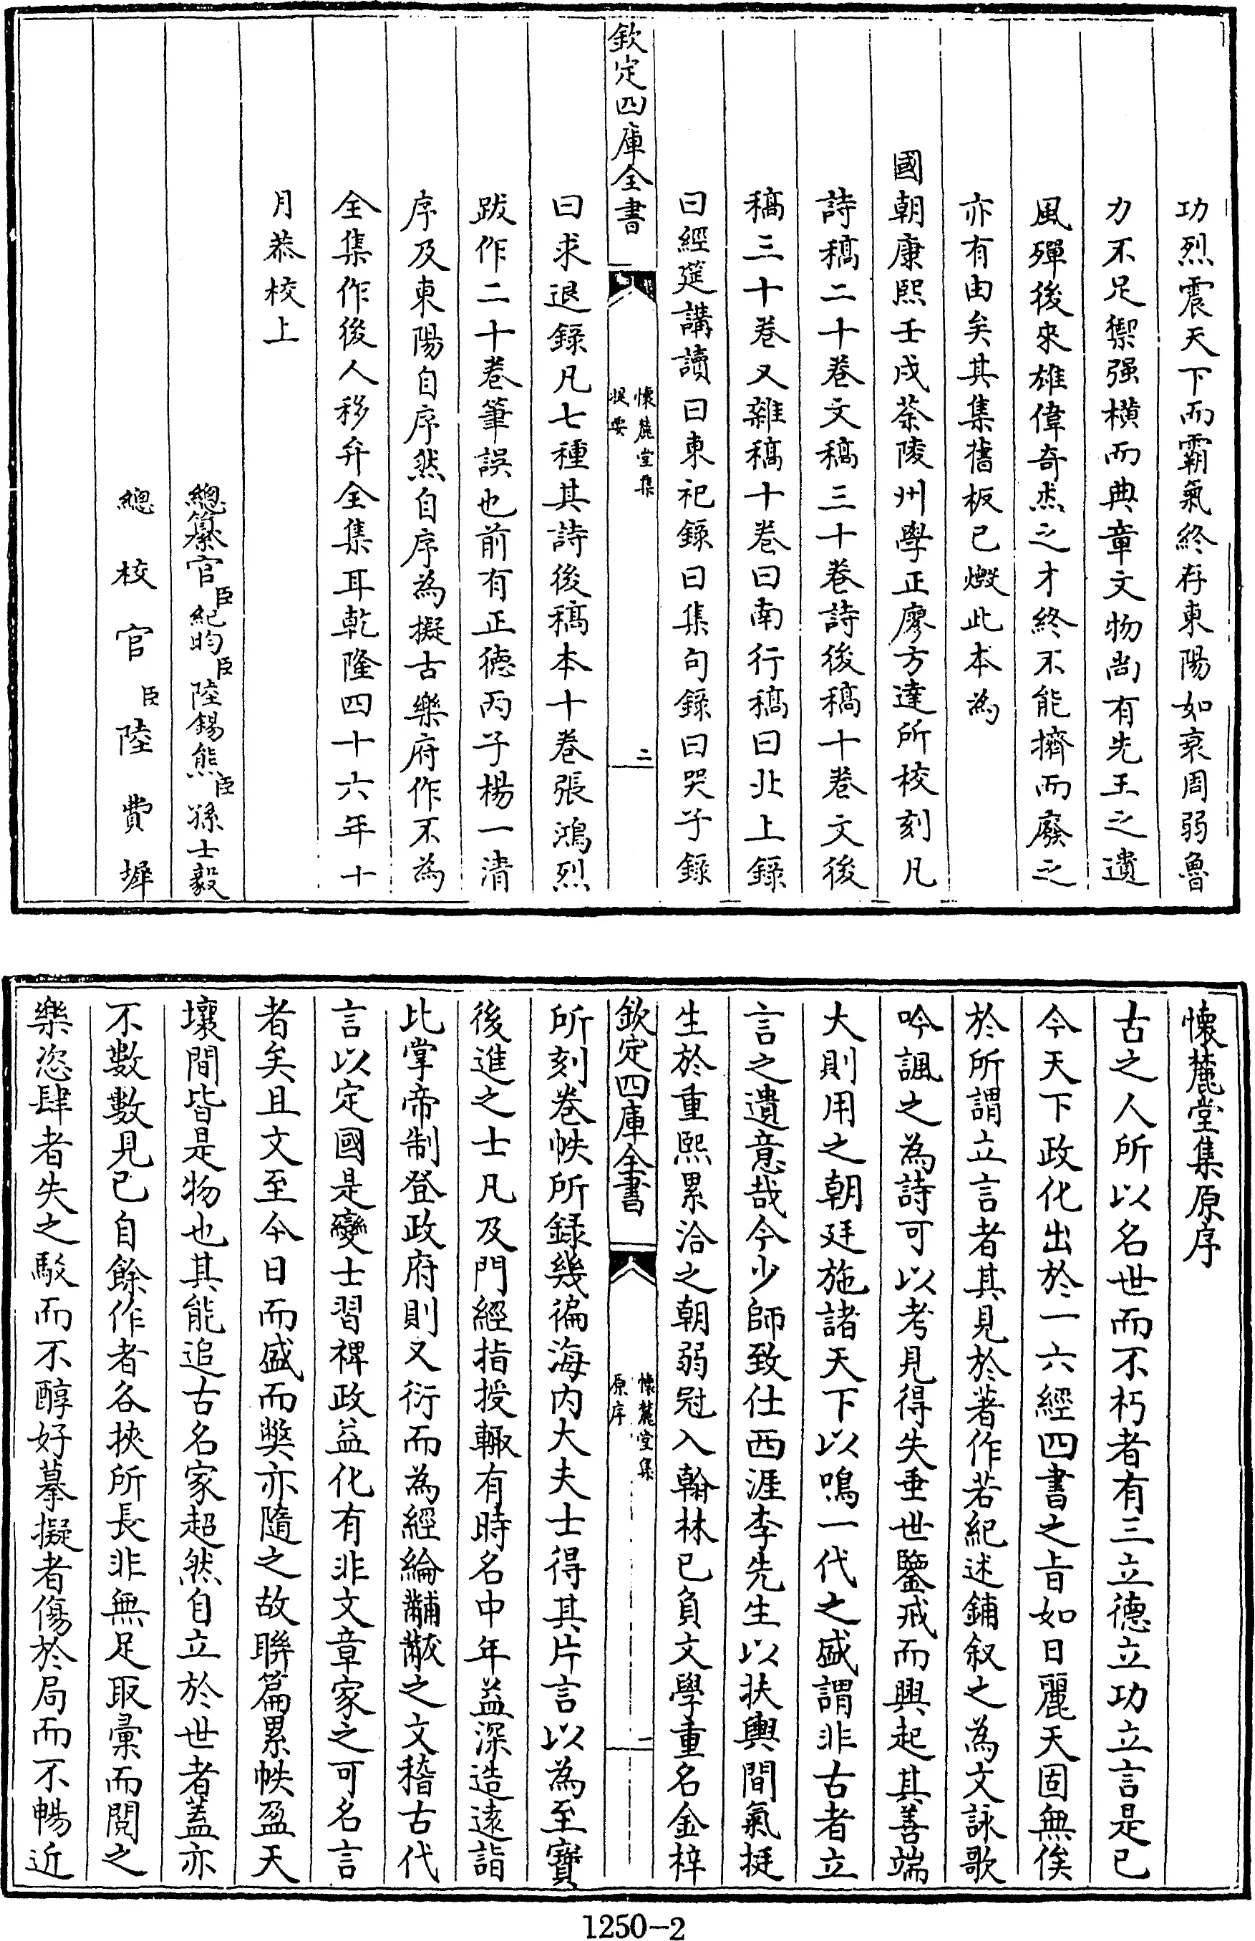 功烈震天下而霸氣終存東陽如衰周弱魯
力不足禦强横而典章文物尚有先王之遺
風殫後來雄偉奇杰之才終不能擠而廢之
亦有由矣其集舊板已燬此本為
國朝康熙壬戌茶陵州學正廖方達所校刻凡
詩稿二十卷文稿三十卷詩後稿十卷文後
稿三十卷又雜稿十卷曰南行稿曰北上錄
曰經筵講讀曰東祀錄曰集句錄曰哭子錄
欽定四庫全書
懷麓堂集
提要
二
曰求退錄凡七種其詩後稿本十卷張鴻烈
跋作二十卷筆誤也前有正德丙子楊一清
序及東陽自序然自序為擬古樂府作不為
全集作後人移弁全集耳乾隆四十六年十
月恭校上
總纂官臣紀昀臣陸錫熊臣孫士毅
總校官臣陸費墀
懷麓堂集原序
古之人所以名世而不朽者有三立德立功立言是已
今天下政化出於一六經四書之旨如日麗天固無俟
於所謂立言者其見於著作若紀述鋪叙之為文詠歌
吟諷之為詩可以考見得失垂世鑒戒而興起其善端
大則用之朝廷施諸天下以鳴一代之盛謂非古者立
言之遺意哉今少師致仕西涯李先生以扶輿間氣挺
生於重熙累洽之朝弱冠入翰林已負文學重名金梓
欽定四庫全書
懷麓堂集
原序
一
所刻卷帙所錄幾徧海内大夫士得其片言以為至寶
後進之士凡及門經指授輙有時名中年益深造遠詣
比掌帝制登政府則又衍而為經綸黼黻之文稽古代
言以定國是變士習裨政益化有非文章家之可名言
者矣且文至今日而盛而獘亦隨之故聯篇累帙盈天
壤間皆是物也其能追古名家超然自立於世者葢亦
不數數見已自餘作者各挾所長非無足取彙而閲之
樂恣肆者失之駁而不醇好摹擬者傷於局而不暢近
1250-2